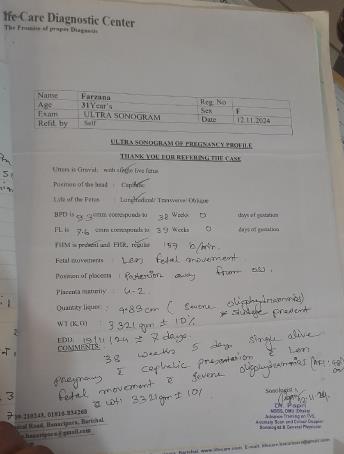 Ife-Care Diagnostic Center
The Promise of proper Diagnosis
Name Farzana Reg. No
Age 31Year's Sex F
Exam ULTRA SONOGRAM Date 12.11.2024
Refd. by Self
ULTRA SONOGRAM OF PREGNANCY PROFILE
THANK YOU FOR REFERING THE CASE
Uterus is Gravid: with single live fetus
Position of the head : Cephalic
Life of the Fetus : Longitudinal/ Transverse/ Oblique
BPD is 9.3 cmm corresponds to 38 Weeks 0 days of gestation
FL is 7.6 cmm corresponds to 39 Weeks 0 days of gestation
FHM is present and FHR, regular 157 b/min.
Fetal movements : Less fetal movement.
Position of placenta : Posterior away from os.
Placenta maturity : G-2.
Quantity liquor: 4.83 cm ( severe oligohydramnios)
present
WT (K.G) : 3321 gm ± 10%
EDD: /11/24 ± 7 days.
COMMENTS: 38 weeks 5 days single alive
pregnancy c cephalic presentation c Less
fetal movement c severe oligohydramnios
c wt: 3321 gm ± 10%
Sonologist
Dr. Papri
MBBS, DMU (Dhaka)
Advance Training on TVS,
Anomaly Scan and Colour Doppler
Sonologist & General Physician
Road, Banaripara, Barishal.